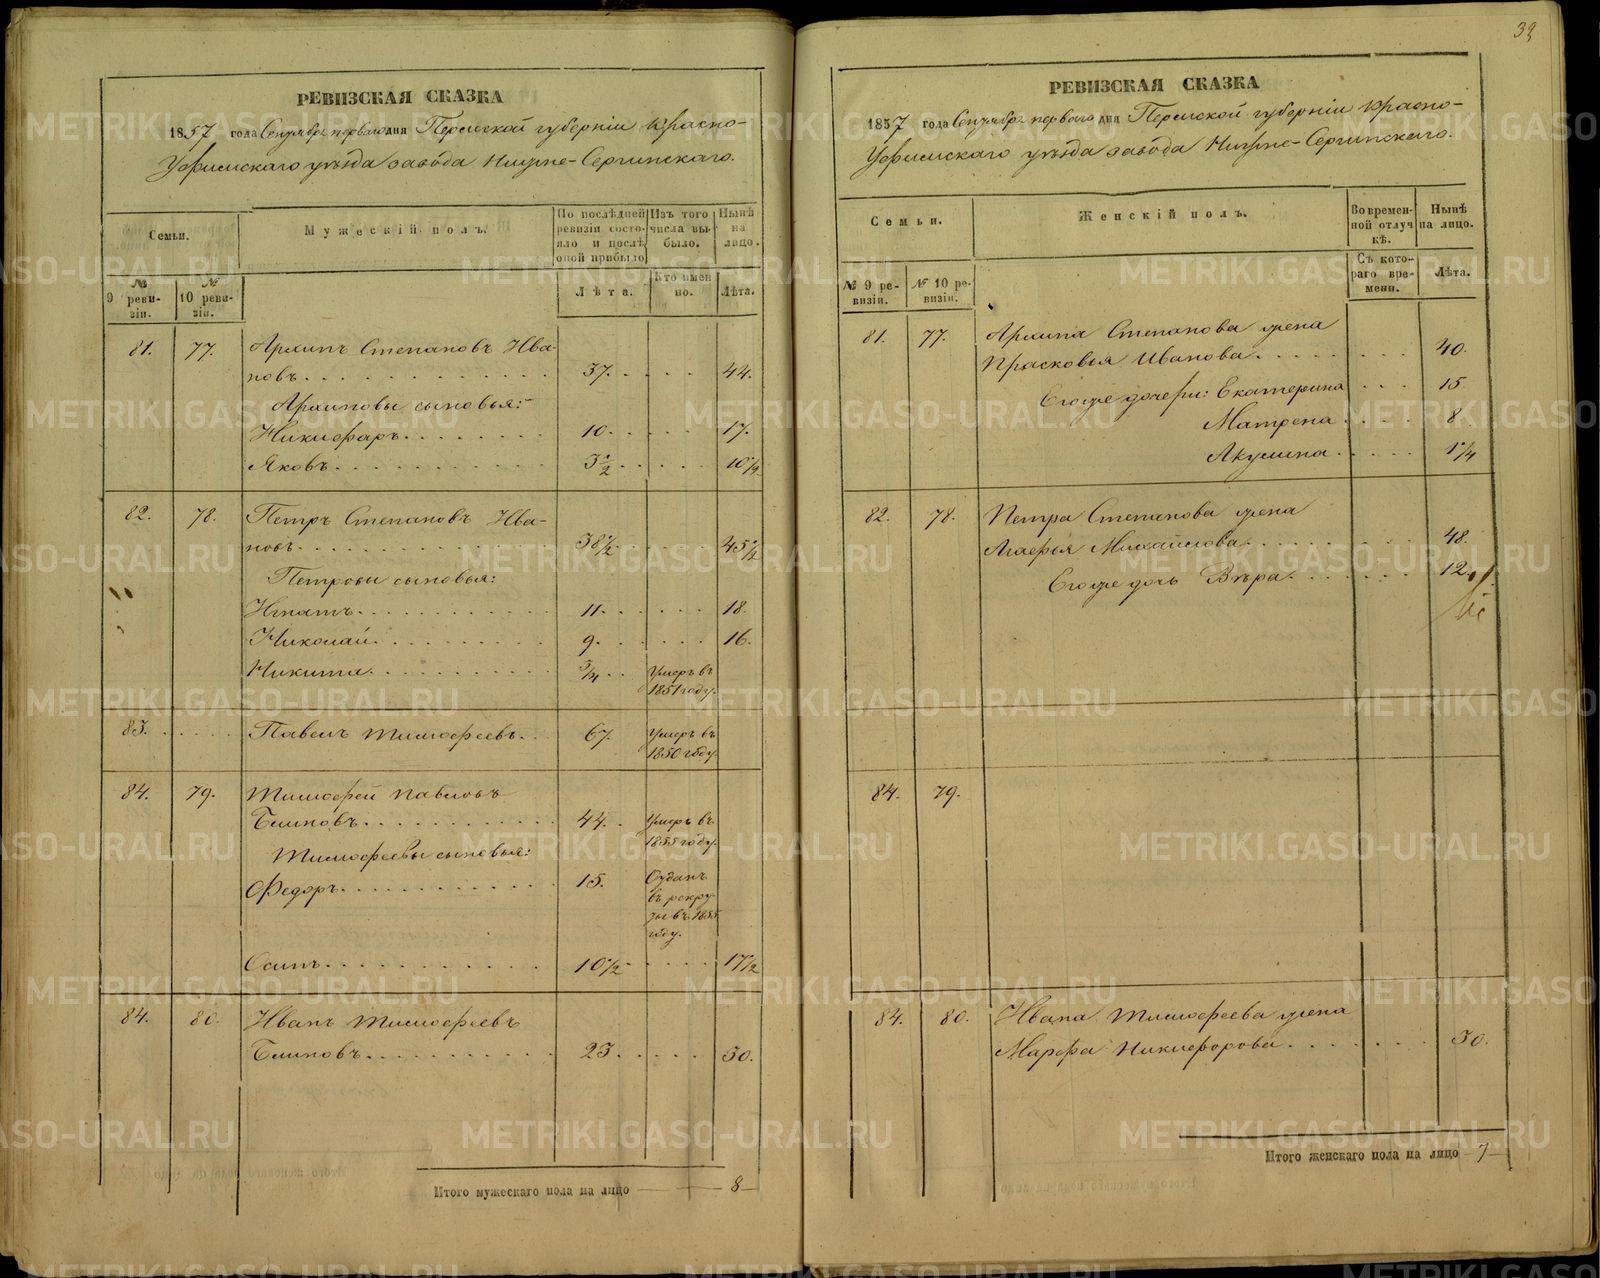 39
РЕВИЗСКАЯ СКАЗКА
1857 года Сентября первого дня Пермской губернiи Красно-
Уфимскаго уѣзда завода Нижне-Сергинскаго.
Семьи.
Мужескiй полъ.
По послѣдней ревизiи состояло и послѣ оной прибыло
Изъ того числа выбыло.
Нынѣ на лицо.
№ 9 ревизiи.
№ 10 ревизiи.
Лѣта.
Кто именно.
Лѣта.
81. 77. Архипъ Степановъ Ива-
новъ 37. 44.
Архиповы сыновья:
Никифаръ 10. 17.
Яковъ 3½ 10½
82. 78. Петръ Степановъ Ива-
новъ 38½ 45½
Петровы сыновья:
Игнатъ 11. 18.
Николай 9. 16.
Никита 3/4 Умеръ въ
1851 году.
83. Павелъ Тимофеевъ 67. Умеръ въ
1850 году.
84. 79. Тимофей Павловъ
Блиновъ 44. Умеръ въ
1855 году.
Тимофеевы сыновья:
Федоръ 15. Отданъ
въ рекру
ты въ 1855
году.
Осипъ 10½ 17½
84. 80. Иванъ Тимофеевъ
Блиновъ 23. 30.
Итого мужескаго пола на лицо 8
РЕВИЗСКАЯ СКАЗКА
1857 года Сентября первого дня Пермской губернiи Красно-
Уфимскаго уѣзда завода Нижне-Сергинскаго.
Семьи.
Женскiй полъ.
Во временной отлучкѣ.
Нынѣ на лицо.
№ 9 ревизiи.
№ 10 ревизiи.
Съ котораго времени.
Лѣта.
81. 77. Архипа Степанова жена
Прасковья Иванова 40.
Его же дочери: Екатерина 15.
Матрена 8
Акулина 1/4
82. 78. Петра Степанова жена
Агафья Михайлова 48.
Его же дочь Вѣра 12.
84. 79.
84. 80. Ивана Тимофеева жена
Марфа Никифорова 30.
Итого женскаго пола на лицо 7
METRIKI.GASO-URAL.RU